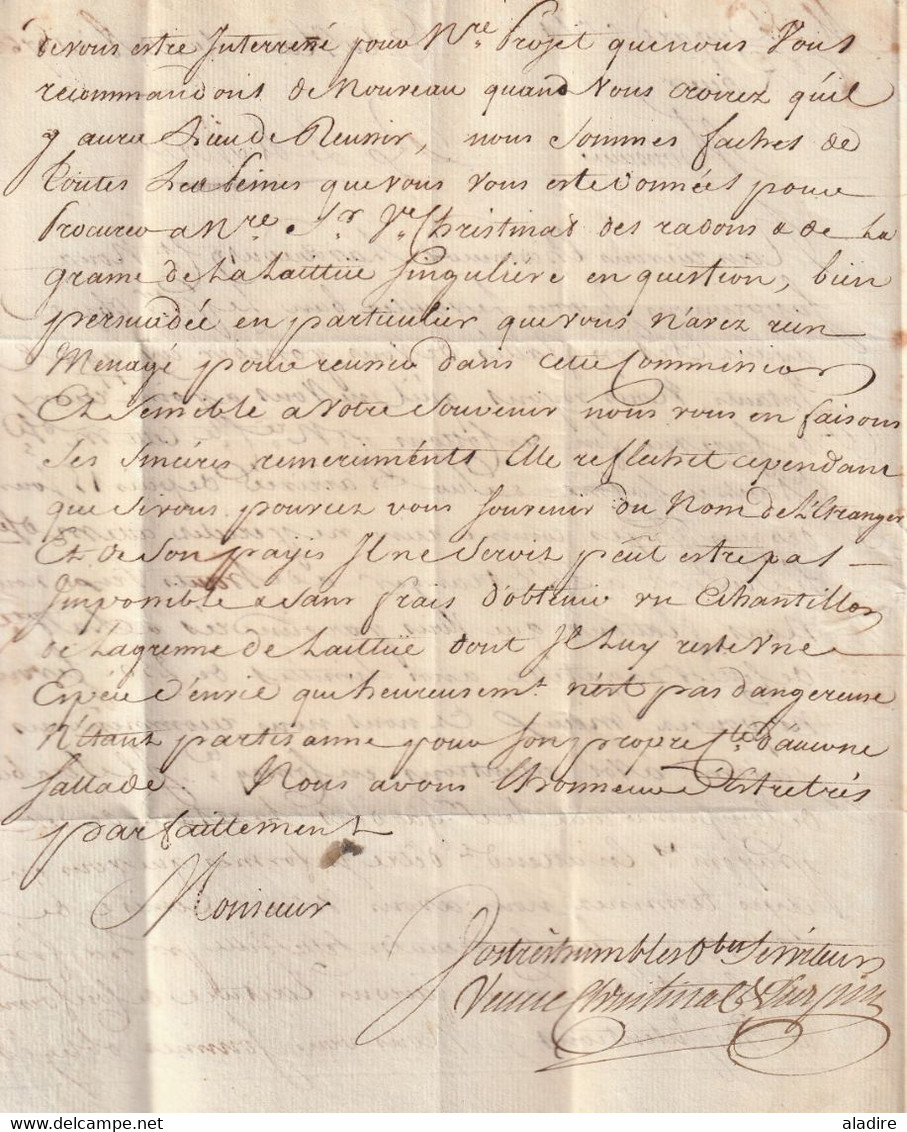 de vous estre Interressé pour N.re Projet que nous Vous
recommandons de Nouveau quand Vous croirez qu'il
y aura Lieu de Reussir, nous sommes fachés de
Toutes Les Peines que vous Vous este données pour
Procurer a N.re S.r V.e Christinas des radons & de La
graine de La Laittüe Singuliére en question, bien
persuadée en particulier que vous n'avez rien
Menagé pour reussir dans cette Commission
Et Sensible a Votre souvenir nous vous en faisons
Ses sincéres remerciments Elle reflechit cependant
que Si vous pouviez vous Souvenir du Nom de L'Etranger
Et de Son payis Il ne Seroit pêut estre pas
Impossible & Sans frais d'obtenir un Echantillon
de La grenne de Laittüe dont Il Luy reste Une
Espéce d'envie qui heureusem.t n'est pas dangereuse
N'Etant partisanne pour Son propre C.te d'aucune
Sallade. Nous avons L'honneur d'Estre trés
parfaittement
Monsieur
Vos trés humbles Ob.ts Serviteurs
Veuve Christinas &
aladire